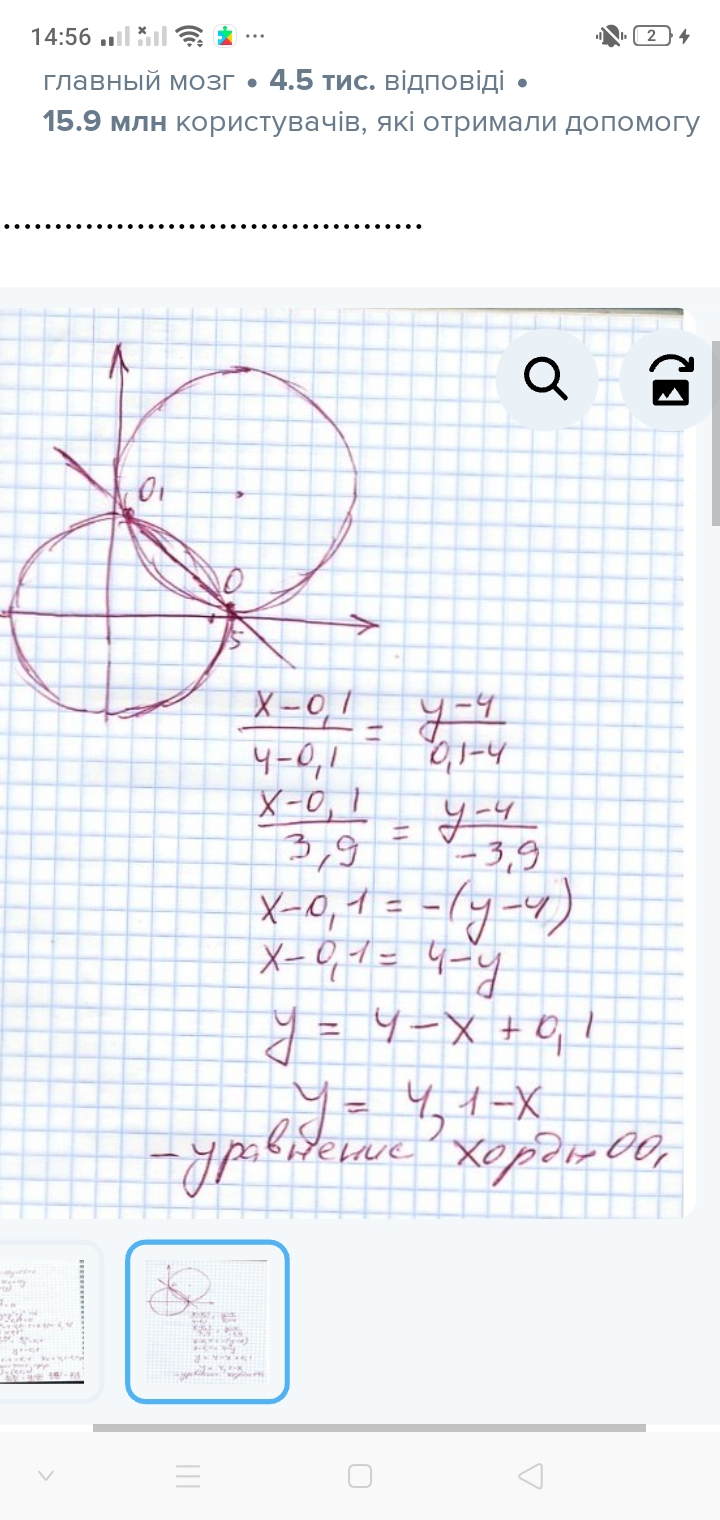 14:56
2
главный мозг • 4.5 тис. відповіді •
15.9 млн користувачів, які отримали допомогу
........................................
O₁
O
5
x-0,1/4-0,1 = y-4/0,1-4
x-0,1/3,9 = y-4/-3,9
x-0,1 = -(y-4)
x-0,1 = 4-y
y = 4-x+0,1
y = 4,1-x
-уравнение хорды OO₁